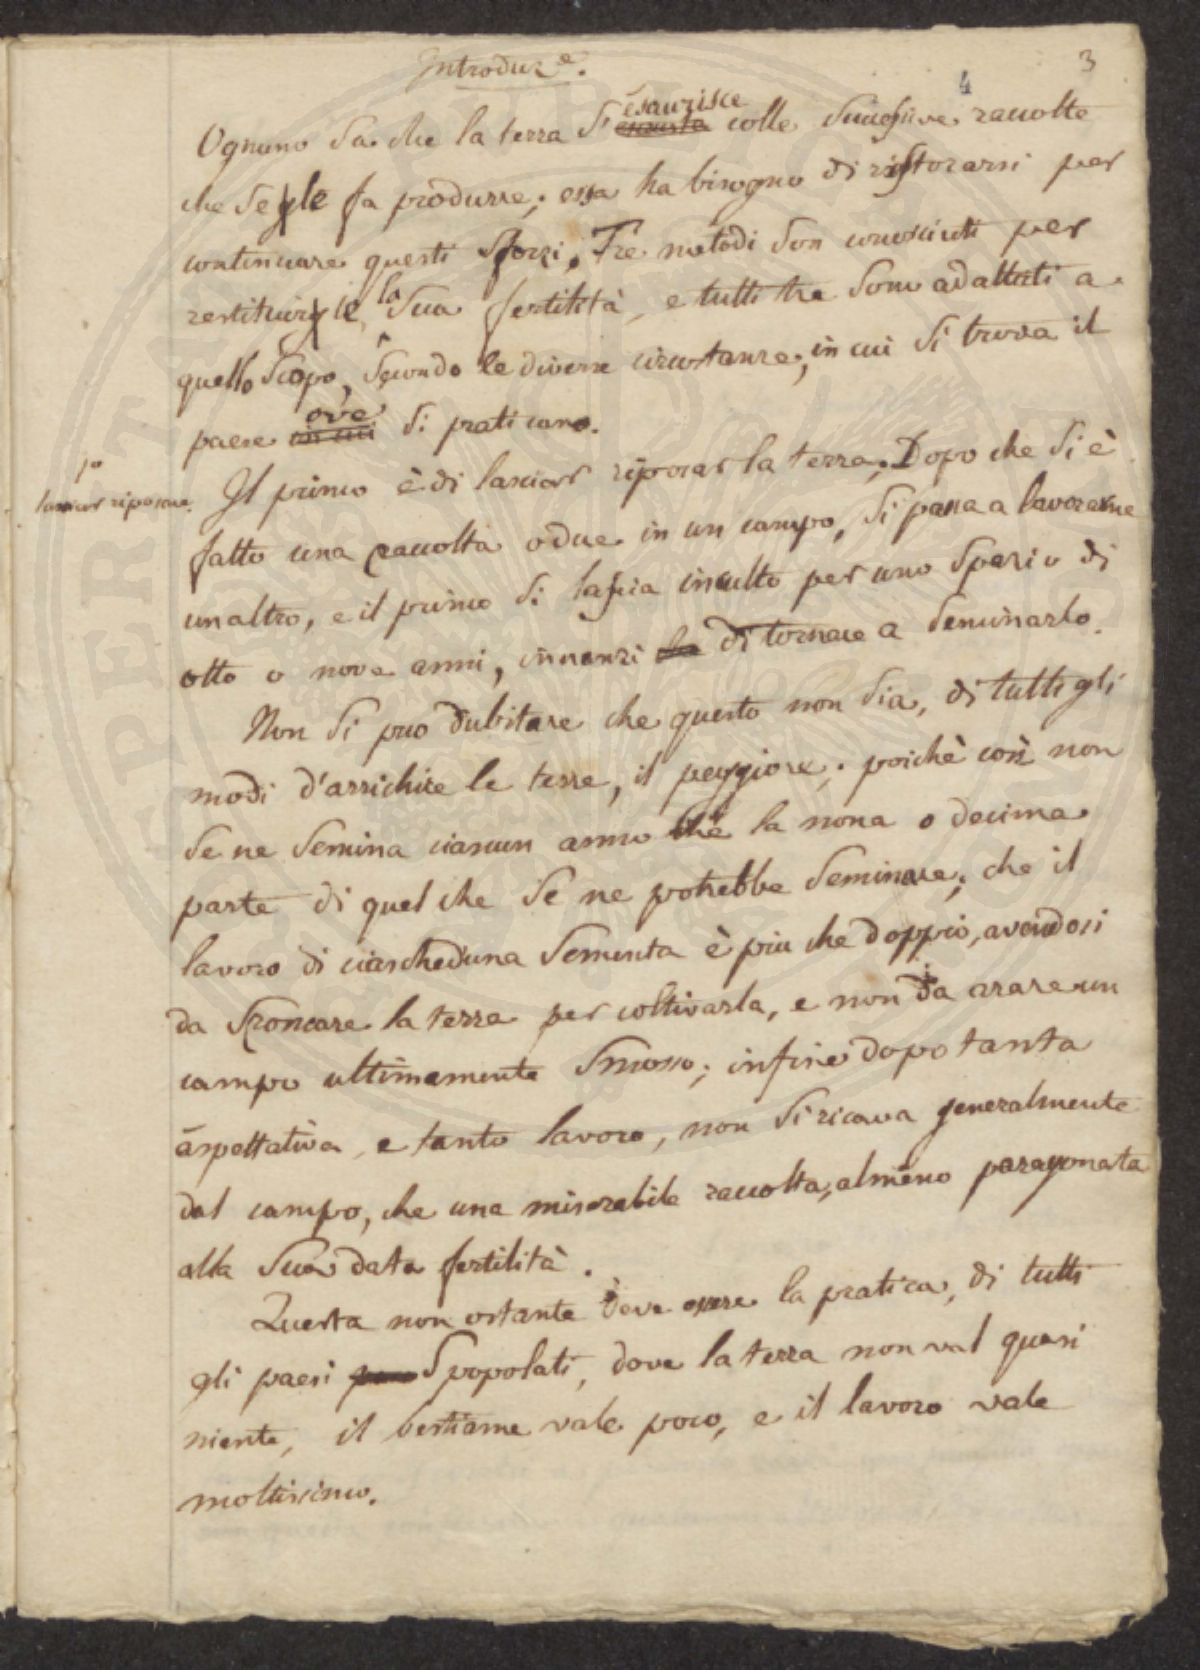 Introduz.e
3
4
Ognuno sa che la terra s'esaurisce colle successive raccolte
che se gle fa produrre; essa ha bisogno di ristorarsi per
continuare questi sforzi. Tre metodi son conosciuti per
restituirgle la sua fertilità, e tutti tre sono adattati a
quello scopo, secondo le diverse circostanze, in cui si trova il
paese in cui ove si praticano.
1°
lasciar riposare.
Il primo è di lasciar riposar la terra. Dopo che si è
fatto una raccolta o due in un campo, si passa a lavorarne
un altro, e il primo si lascia incolto per uno spazio di
otto o nove anni, innanzi di tornare a seminarlo.
Non si può dubitare che questo non sia, di tutti gli
modi d'arrichire le terre, il peggiore; poichè così non
se ne semina ciascun anno che la nona o decima
parte di quel che se ne potrebbe seminare; che il
lavoro di ciascheduna sementa è più che doppio, avendosi
da sroncare la terra per coltivarla, e non da arare un
campo ultimamente smosso; infine dopo tanta
aspettativa, e tanto lavoro, non si ricava generalmente
dal campo, che una miserabile raccolta, almeno paragonata
alla sua data fertilità.
Questa non ostante deve essere la pratica, di tutti
gli paesi spopolati, dove la terra non val quasi
niente, il bestiame vale poco, e il lavoro vale
moltissimo.